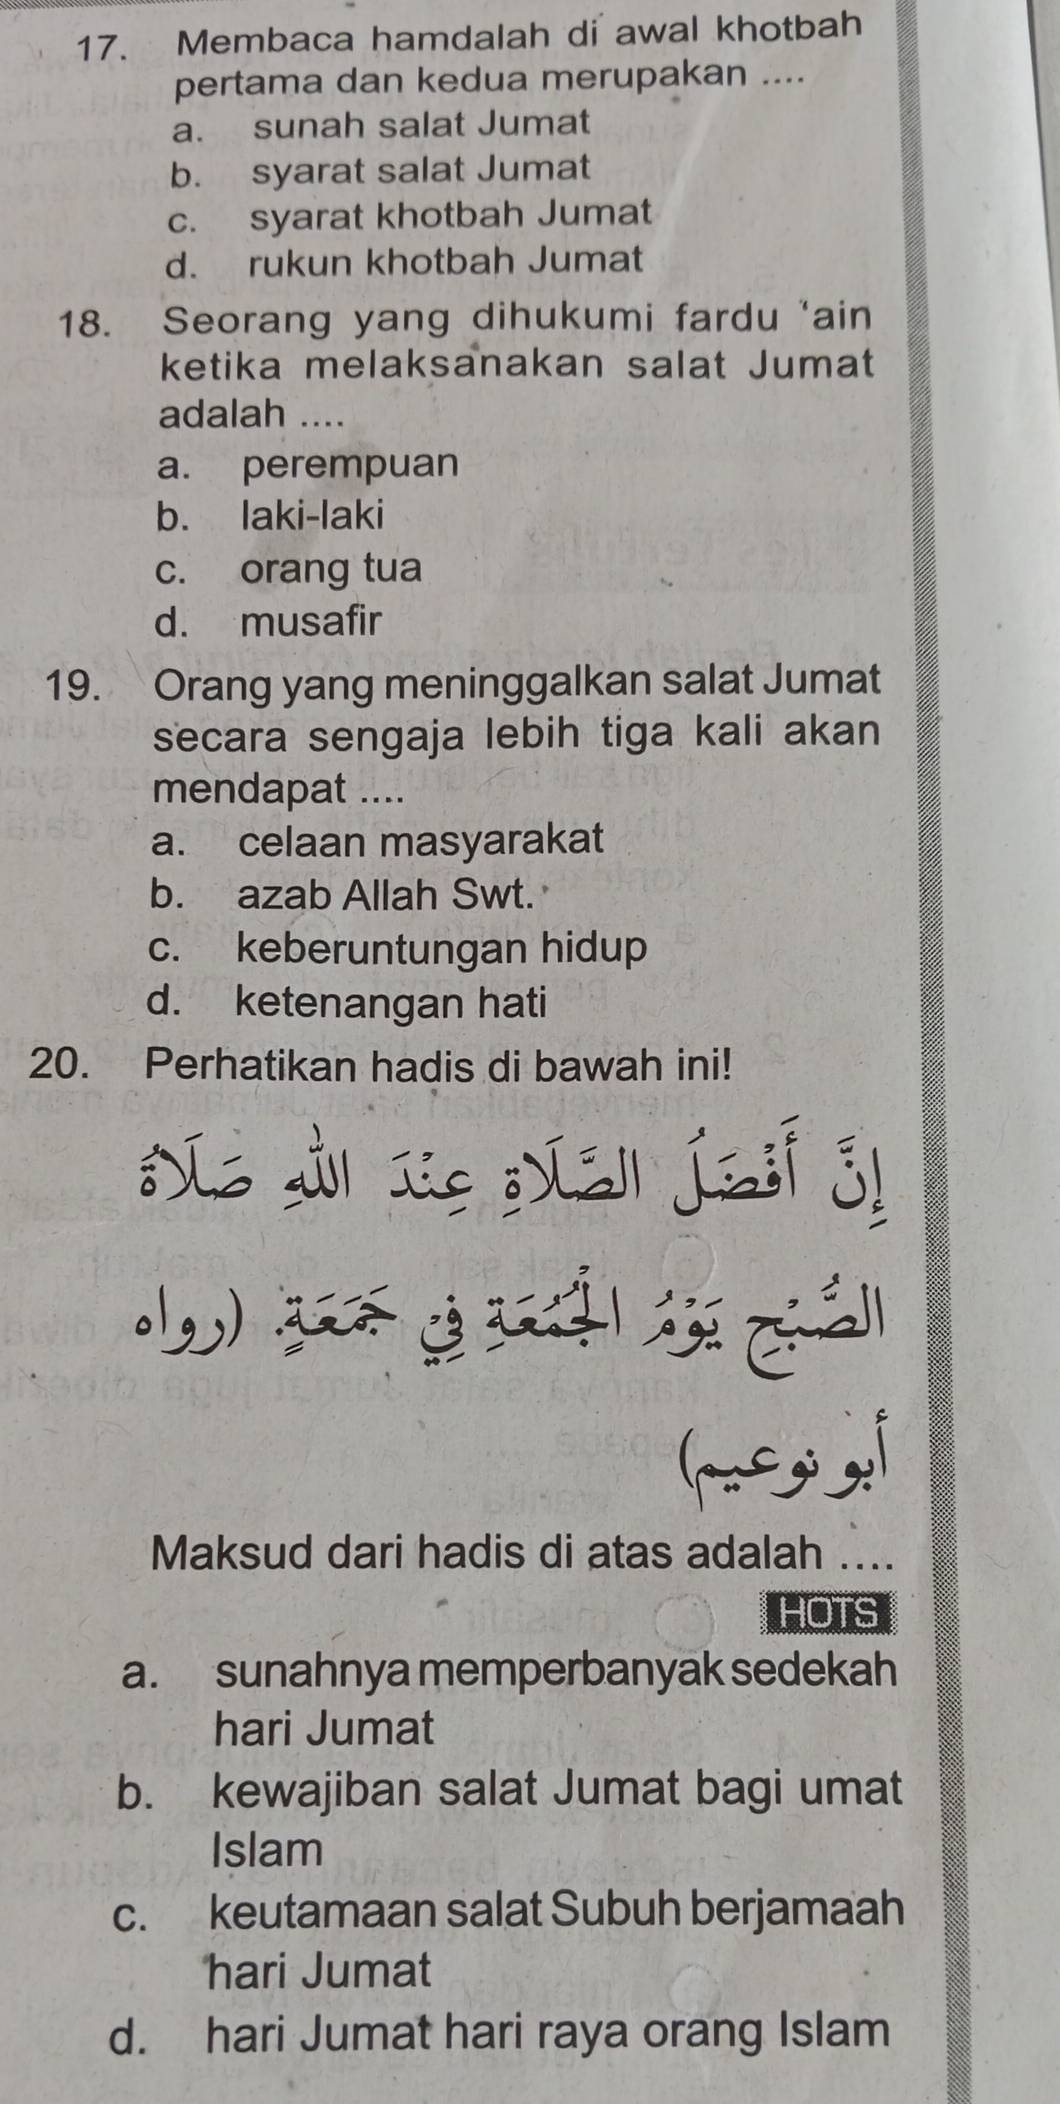 17. Membaca hamdalah di awal khotbah
pertama dan kedua merupakan ....
a. sunah salat Jumat
b. syarat salat Jumat
c. syarat khotbah Jumat
d. rukun khotbah Jumat
18. Seorang yang dihukumi fardu 'ain
ketika melaksanakan salat Jumat
adalah ....
a. perempuan
b. laki-laki
c. orang tua
d. musafir
19. Orang yang meninggalkan salat Jumat
secara sengaja lebih tiga kali akan
mendapat ....
a. celaan masyarakat
b. azab Allah Swt.
c. keberuntungan hidup
d. ketenangan hati
20. Perhatikan hadis di bawah ini!
إِنَّ أَفْضَلَ الصَّلَاةِ عِنْدَ اللهِ صَلَاةُ
الصُّبْحِ يَوْمُ الْجُمُعَةِ فِي جَمَعَةٍ. (رواه
أبو نوعيم)
Maksud dari hadis di atas adalah ....
HOTS
a. sunahnya memperbanyak sedekah
hari Jumat
b. kewajiban salat Jumat bagi umat
Islam
c. keutamaan salat Subuh berjamaah
hari Jumat
d. hari Jumat hari raya orang Islam